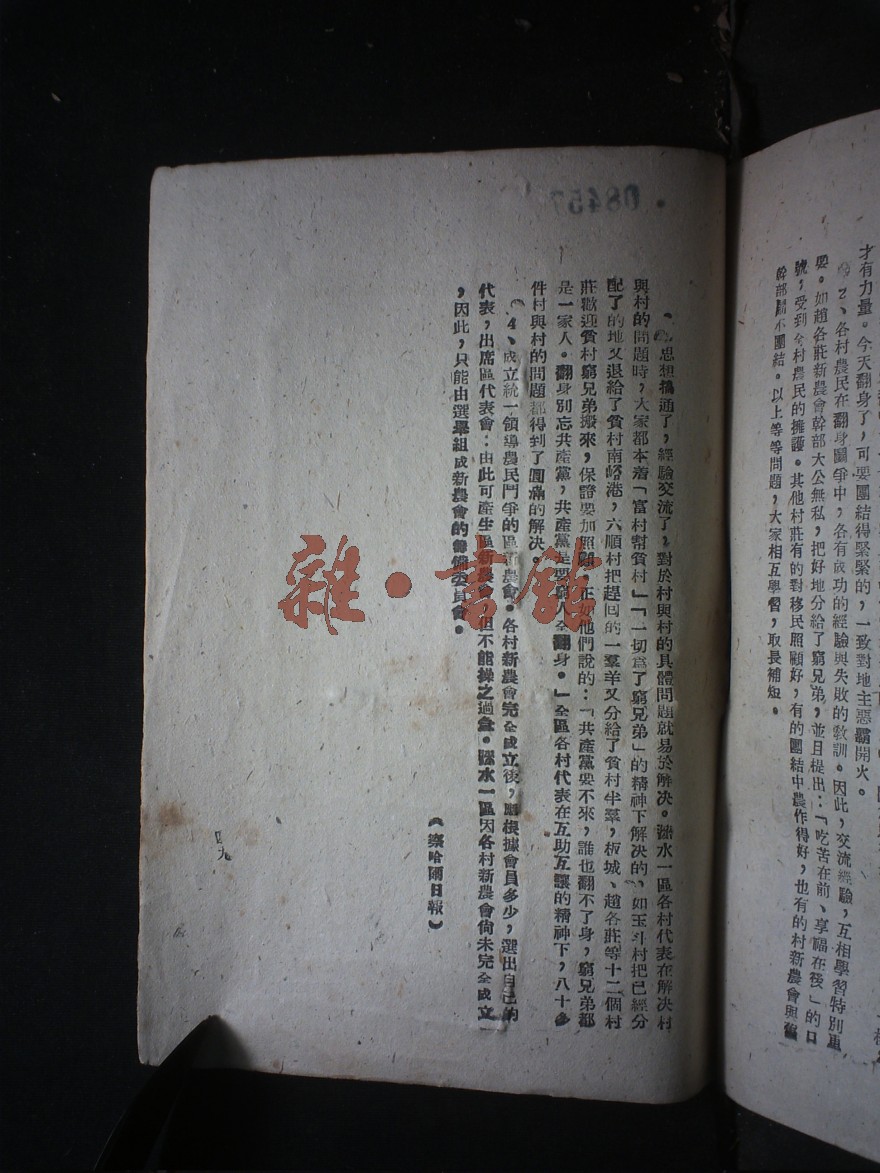 才有力量。今天翻身了，可要團結得緊緊的，一致對地主惡霸開火。
2、各村農民在翻身鬬爭中，各有成功的經驗與失敗的教訓。因此，交流經驗，互相學習特別重
要。如趙各莊新農會幹部大公無私，把好地分給了窮兄弟，並且提出：「吃苦在前、享福在後」的口
號，受到全村農民的擁護。其他村莊有的對移民照顧好，有的團結中農作得好，也有的村新農會與舊
幹部鬧不團結。以上等等問題，大家相互學習，取長補短。
思想搞通了，經驗交流了，對於村與村的具體問題就易於解决。淶水一區各村代表在解决村
與村的問題時，大家都本着「富村幫貧村」「一切爲了窮兄弟」的精神下解决的，如玉斗村把已經分
配了的地又退給了貧村南峪港，六順村把趕回的一羣羊又分給了貧村半羣，板城、趙各莊等十二個村
莊歡迎貧村窮兄弟搬來，保證要加照顧，正如他們說的：「共產黨要不來，誰也翻不了身，窮兄弟都
是一家人。翻身別忘共產黨，共產黨是要窮人全翻身。」全區各村代表在互助互讓的精神下，八十多
件村與村的問題都得到了圓滿的解决。
4、成立統一領導農民鬥爭的區新農會。各村新農會完全成立後，應根據會員多少，選出自己的
代表，出席區代表會：由此可產生區新農會，但不能操之過急。淶水一區因各村新農會尙未完全成立
，因此，只能由選舉組成新農會的籌備委員會。
（察哈爾日報）
四九
08457
雜·書館